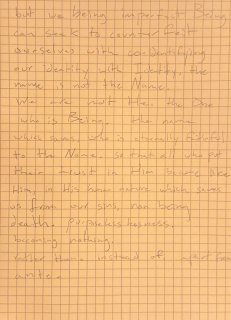 but we being important Being
can seek to counterfeit
ourselves with co-identifying
our identity with identity, the
name is not the Name.
We are not He, the One
who is Being, the name
which saves who is eternally faithful
to the Name. so that all who put
their trust in Him become like
Him, in His human nature which saves
us from our sins, non being
death. purposelessness.
becoming nothing.
rather than instead of